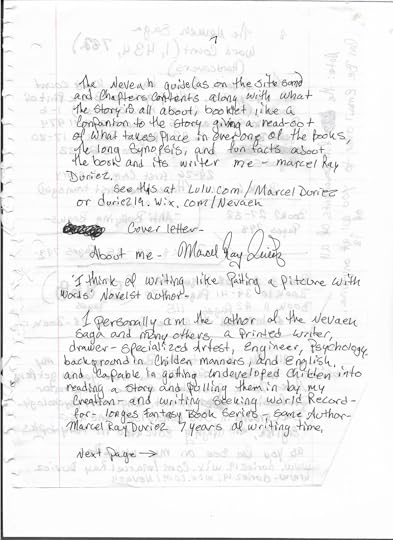 7
The Nevaeh guide (as on the site song
and Chapters Contents along with what
the story is all about, booklet like a
companion to the story giving a read-out
of what takes place in everone of the books,
the long synopsis, and fun facts about
the book and its writer me - marcel Ray
Duriez.
see this at Lulu.com/Marcel Duriez
or duriez19.wix.com/Nevaeh
Cover letter-
About me - Marcel Ray Duriez
"I think of writing like Paiting a Pitcure With
Words" Novelst author-
I personally am the athor of the Nevaeh
Saga and many others - a Printed writer,
drawer - specialized artest, Engineer, Psychology,
background in Childen manners, and English,
and Capable in getting undeveloped Childten into
reading a story and Pulling them in by my
Creation - and writing. Seeking World Record -
for - longes fantasy Book Series - same Author -
Marcel Ray Duriez 7 years of writing time.
Next Page →